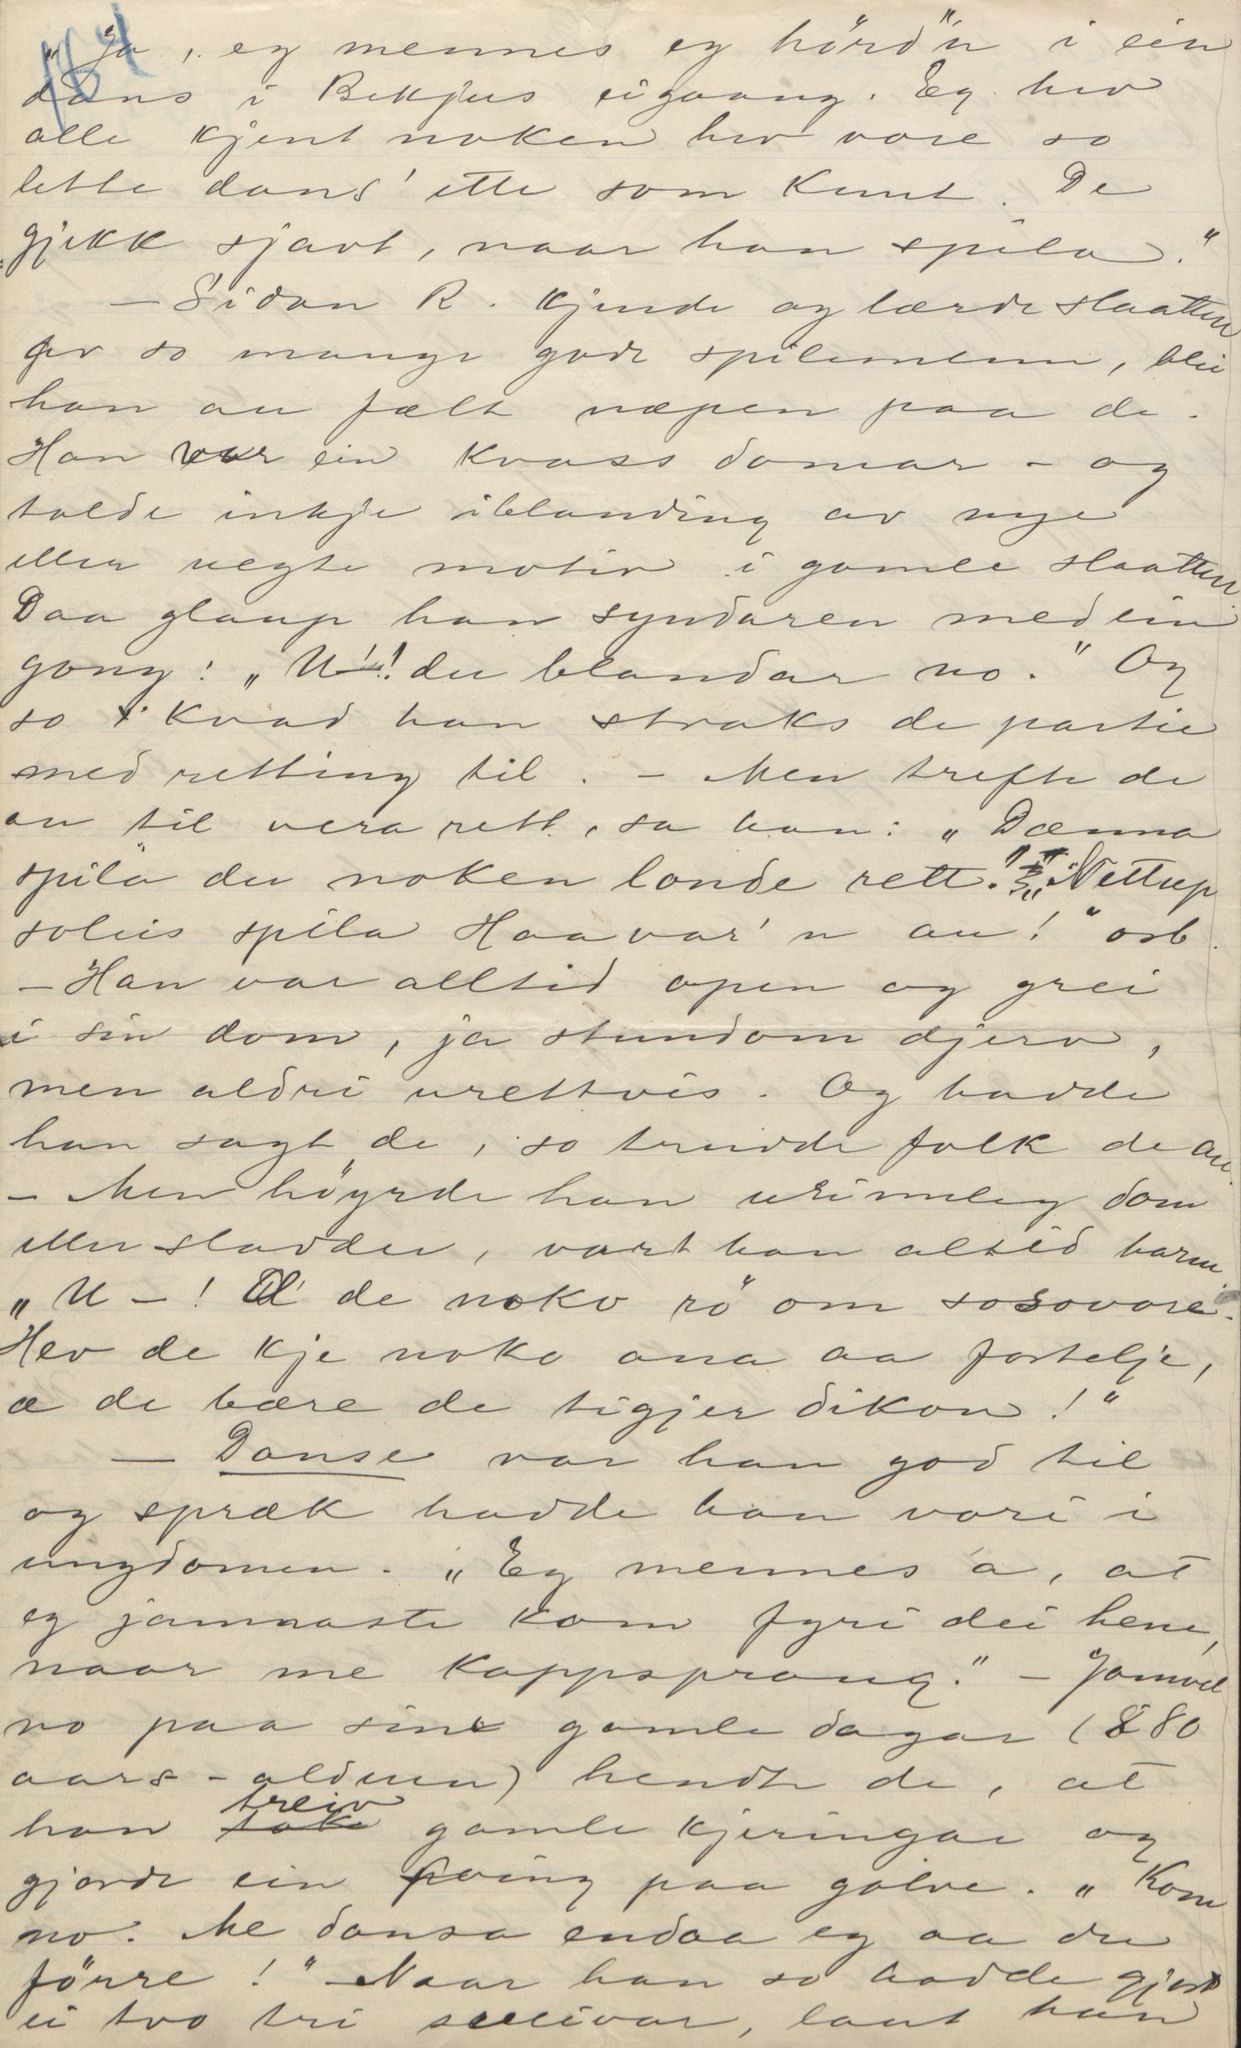 164
„Ja, eg mennes eg hörd'n i ein
dans i Bekjhus eigaang. Eg hev
alle kjent noken hev vore so
lette dans' ette som Knut. De
gjekk sjavt, naar han spila."
— Sidan R. kjende og lærde slaatten
av so mange gode spilemenn, blei
han au fælt næpen paa de.
Han var ein kvass domar – og
tolde inkje iblanding av nye
eller uegte motiv i gamle slaatten.
Daa glaup han syndaren med ein
gong: „U-! du blandar no." Og
so kvad han straks de partie
med retting til. – Men trefte de
an til vera rett, sa han: „Dænna
spila du noken londe rett." „Nettup
soleis spila Haavar'n au!" osb.
– Han var alltid open og grei
i sin dom, ja stundom djerv,
men aldri urettvis. Og hadde
han sagt de, so trudde folk de au.
– Men höyrde han urimeleg dom
eller sladder, vart han altid harm.
„U – ! Æ' de noko rö om sosovore.
Hev de kje noko ana aa fortelje,
æ de bære de tigjer dikon!"
— Danse var han god til
og spræk hadde han vori i
ungdomen. „Eg mennes a, at
eg jamnaste kom fyri dei hene,
naar me kappsprang." – Jamvel
no paa sine gamle dagar (80
aars-alderen) hendte de, at
han treiv gamle kjeringar og
gjorde ein sving paa golve. „Kom
no. Me dansa endaa eg aa du
förre!" – Naar han so hadde gjort
ei tvo tri sveivar, laut han